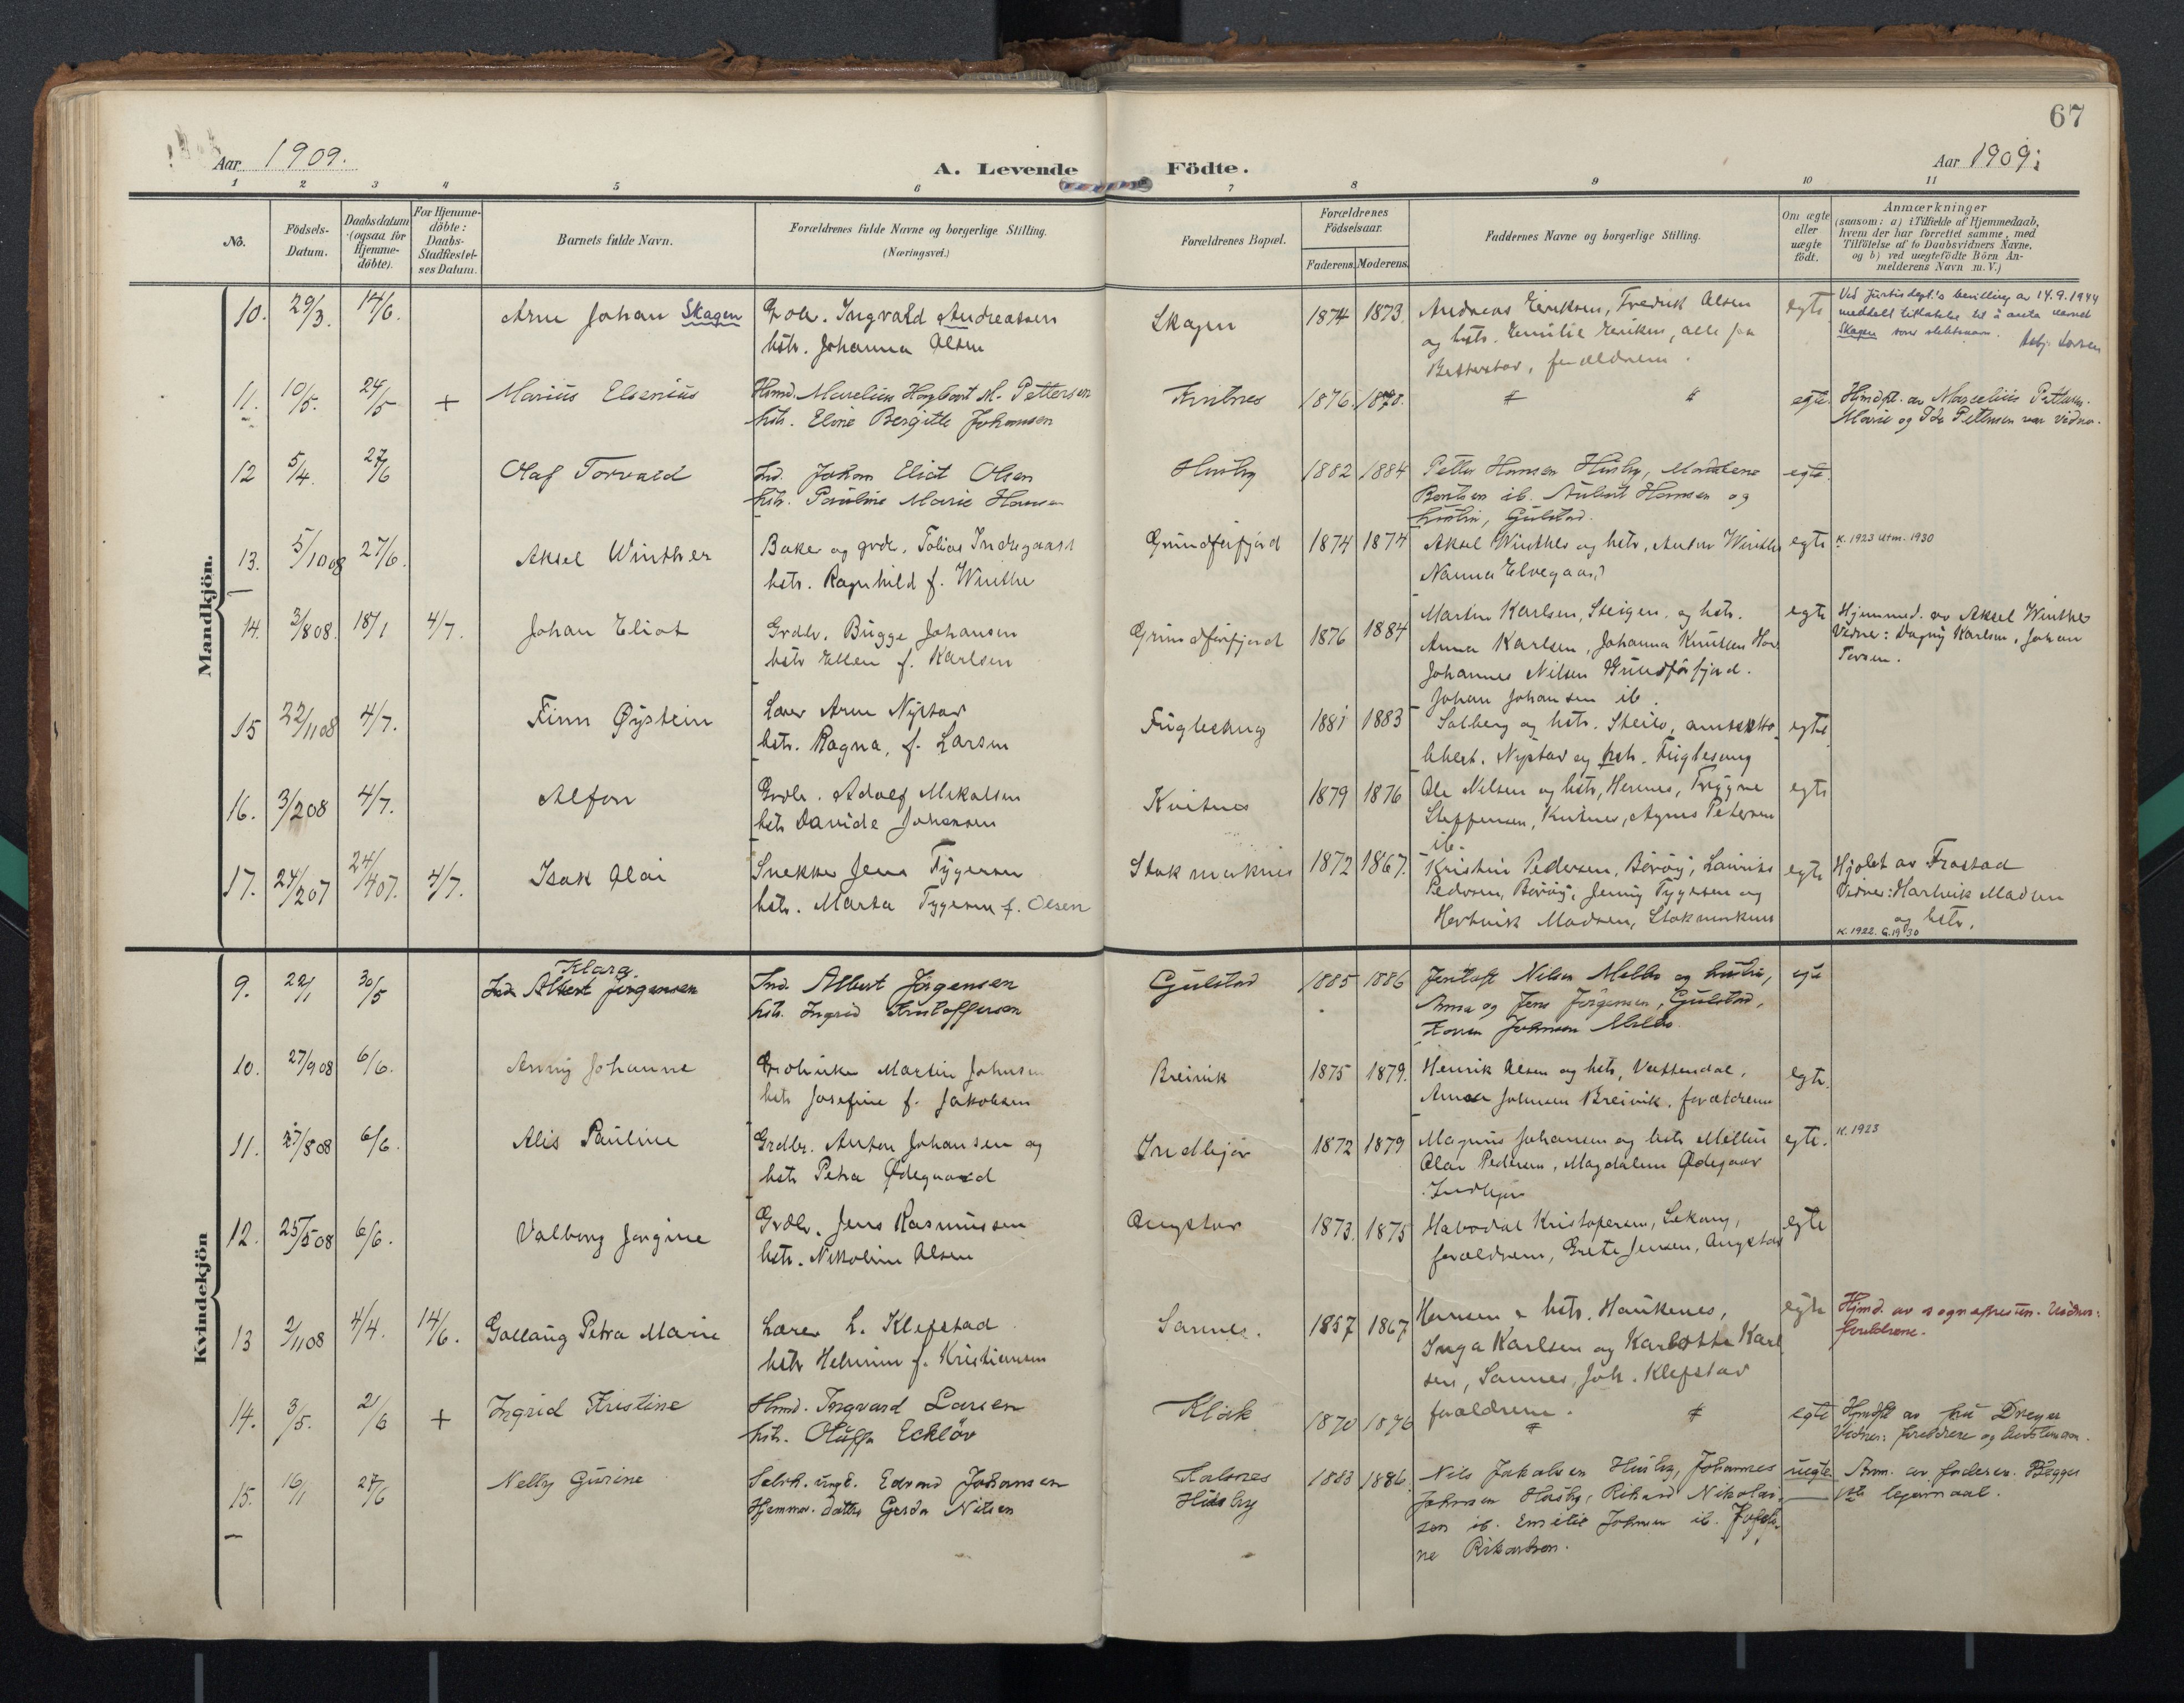 67
Aar 1909.
A. Levende Födte.
Aar 1909.
1 2 3 4 5 6 7 8 9 10 11
No.
Födsels-Datum.
Daabsdatum (ogsaa for Hjemme-döbte).
For Hjemme-döbte: Daabs-Stadfæstel-ses Datum.
Barnets fulde Navn.
Forældrenes fulde Navne og borgerlige Stilling. (Næringsvei.)
Forældrenes Bopæl.
Forældrenes Födselsaar.
Faderens. Moderens.
Faddernes Navne og borgerlige Stilling.
Om ægte eller uægte födt.
Anmærkninger
(saasom: a) i Tilfælde af Hjemmedaab, hvem der har forrettet samme, med Tilföielse af to Daabsvidners Navne, og b) ved uægtefödte Börn Anmelderens Navn m. V.)
Mandkjön.
10. 29/3. 14/6. Arne Johan Skagen
Ingvald Andreassen
hstr. Johanna Olsen
Skagen 1874 1873.
Andreas Eriksen, Fredrik Olsen
og hstr. Emilie Eriksen, alle fra
forældrene.
egte
Ved justisdept.'s bevilling av 14.9.1944
meddelt tillatelse til å anta navnet
Skagen som slektsnavn.
11. 10/5. 24/5 + Marius Elsenius
Hmd. Marelius Hagbart M. Pettersen
hstr. Eline Bergitte Johansen
1876. 1870.
egte.
Hjmdbt. av Marcelius Petters.
Marie og Ida Pettersen var vidne.
12 5/4. 27/6 Olaf Torvald
Ind. Johan Eliot Olsen
hstr. Pauline Marie Hansen
Husby 1882 1884
Petter Hansen Husby, Madalene
Bentsen ib. Hansen og
hustru, Gulstad.
egte.
13. 5/10 08 27/6. Aksel Winther
Baker og grdr. Tobias Indregaard
hstr. Ragnhild f. Winther
Grundforfjord 1874 1874
Aksel Winther og hstr, Winther
Nanna Elvegaard
egte
K. 1923 Utm. 1930
14. 3/8 08. 18/1 4/7. Johan Eliot
Grdbr. Bugge Johansen
hstr Ellen f. Karlsen
Grundforfjord 1876 1884
Martin Karlsen, Steigen, og hstr.
Anna Karlsen, Johanna Knutsen
Johannes Nilsen Grundforfjord.
Johan Johansen ib.
egte
Hjemmed. av Aksel Winther
Vidner: Dagny Karlsen, Johan
15 22/11 08 4/7. Finn Øystein
Lærer Arne Nystad
hstr. Ragna, f. Larsen
Fuglesang 1881 1883
Solberg og hstr. Steilo,
Nystad og hstr. Fuglesang
egte
16. 3/2 08 4/7. Alfon
Grdbr. Adolf Mikalsen
hstr Davide Johansen
Kvitnes 1879 1876
Ole Nilsen og hstr, Hennes, Trygve
Steffensen, Kvitnes, Agnes Petersen
ib.
egte
17. 24/2 07 24/4 07. 4/7. Isak Olai
Snekker Jens Tygesen
hstr. Marta Tygesen f. Olsen
Stokmarknes 1872 1867.
Kristine Pedersen, Børøy, Laurits
Pedersen, Børøy, Jenny Tygesen og
Hartvik Madsen, Stokmarknes
egte
Hjdbt av Frostad
Vidner: Hartvik Madsen
og hstr.
K. 1922. G. 1930
Kvindekjön
9. 22/1 30/5 Klara
Ind Albert Jørgensen
Ind. Albert Jørgensen
hstr. Ingrid Kristoffersen
Gulstad 1885 1886
Jentoft Nilsen Melbo og hustru,
Anna og Jens Jørgensen, Gulstad,
Johnsen Melbo.
egte
10. 27/9 08 6/6. Anny Johanne
Martin Johnsen
hstr Josefine f. Jakobsen
Breivik 1875 1879.
Henrik Olsen og hstr, Vattendal,
Anna Johnsen Breivik, forældrene
egte.
11. 27/8 08 6/6. Alis Pauline
Grdbr. Anton Johansen og
hstr Petra Ødegaard
Indbjør 1872 1879
Magnus Johansen og hstr Melbu
Olav Pedersen, Magdalene Ødegaar
Indbjør
egte.
K. 1923
12. 25/5 08 6/6. Valborg Jorgine
Grdbr. Jens Rasmussen
hstr. Nikoline Olsen
Angstad 1873. 1875
Kristofersen, Lekang,
forældrene, Grete Jensen, Angstad
egte
13 2/11 08 4/4. 14/6. Gollaug Petra Marie
Lærer L. Klefstad
hstr f. Kristiansen
Sannes. 1857 1867
Hansen & hstr. Haukenes,
Inga Karlsen og Karlotta Karl
sen, Sannes, Joh. Klefstad
forældrene.
egte
Hjmd. av sognepresten. Vidner:
foreldrene.
14. 3/5. 2/6 + Ingrid Kristine
Hmd. Ingvard Larsen
hstr. Oluffa Ecklöv
1870 1876
egte
Hjmdbt av fru Dreyer
Vidner: foreldrene og
15. 16/1 27/6 Nelly Gurine
Selvh. ungk. Edvard Johansen
Hjemmev. datter Gerda Nilsen
Husby 1883 1886.
Nils Jakobsen Husby, Johannes
Johnsen Husby, Rikard Nikolai-
sen ib. Emelie Johnsen ib.
ne Rikardsen.
uegte
Anm. av faderen. Begges
1ste leiermaal.